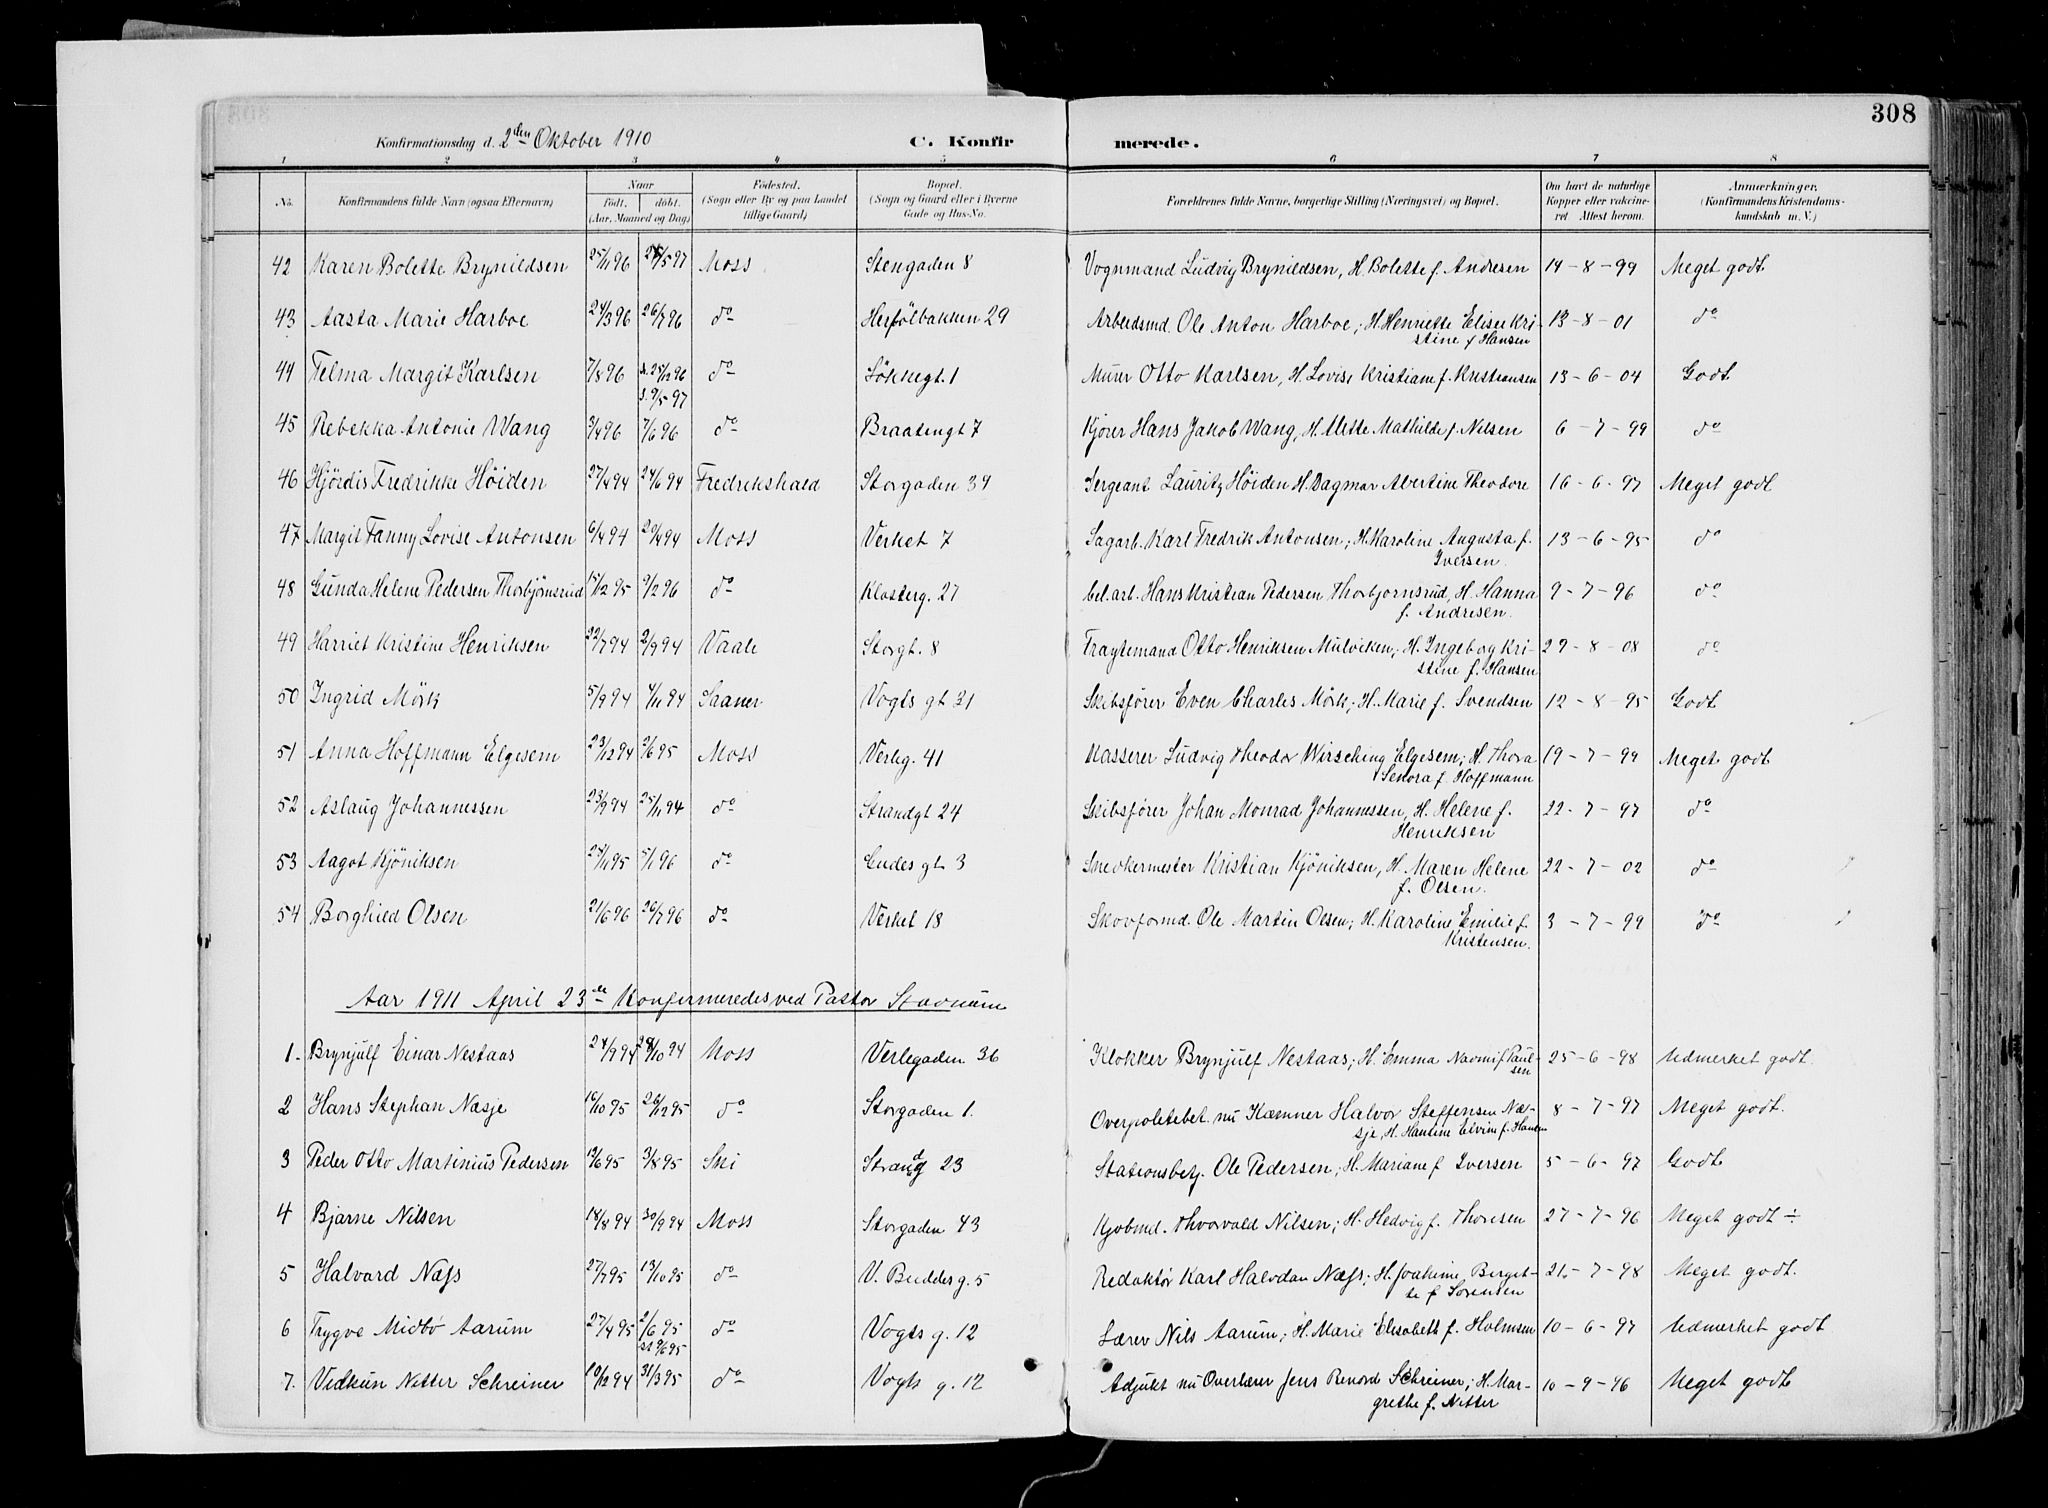 308
Konfirmationsdag d. 2den Oktober 1910 C. Konfirmerede.
1 2 3 4 5 6 7 8
No. Konfirmandens fulde Navn (ogsaa Efternavn) Naar født. døbt. (Aar, Maaned og Dag) Fødested. (Sogn eller By og paa Landet tillige Gaard) Bopæl. (Sogn og Gaard eller i Byerne Gade og Hus-No. Forældrenes fulde Navne, borgerlige Stilling (Næringsvei) og Bopæl. Om havt de naturlige Kopper eller vaccineret Attest herom. Anmærkninger. (Konfirmandens Kristendomskundskab m. V.)
42 Karen Bolette Brynildsen 25/11 96 /5 97 Moss Stengaden 8 Vognmand Ludvig Brynildsen, H. Bolette f. Andresen 14-8-99 Meget godt
43 Aasta Marie Harboe 24/3 96 26/7 96 do Herfölbakken 29 Arbeidsmd. Ole Anton Harboe; H. Henriette Elise Kri- 13-8-01 do
stine f Hansen
44 Telma Margit Karlsen 7/8 96 /12 96 do Lökkegt. 1 Murer Otto Karlsen, H. Lovise Kristiane f. Kristiansen 13-6-04 Godt
s. 9/5 97
45 Rebekka Antonie Wang 3/4 96 7/6 96 do Braatengt 7 Kjörer Hans Jakob Wang, H. Mette Mathilde f. Nilsen 6-7-99 do
46 Hjördis Fredrikke Höiden 27/4 94 24/6 94 Fredrikshald Storgaden 34 Sergeant Lauritz Höiden H. Dagmar Abertine Theodore 16-6-97 Meget godt
47 Margit Fanny Lovise Antonsen 6/4 94 29/4 94 Moss Verket 7 Sagarb. Karl Fredrik Antonsen; H. Karoline Augusta f. 13-6-95 do
Iversen.
48 Gunda Helene Pedersen Thorbjörnsrud 15/12 95 9/2 96 do Klosterg. 27 bel. arb. Hans Kristian Pedersen Thorbjornsrud, H. Hanna 9-7-96 do
f. Andresen.
49 Harriet Kristine Henriksen 22/7 94 2/9 94 Vaale Storgt. 8 Fragtemand Otto Henriksen Mulviken; H. Ingeborg Kri- 29-8-08 do
stine f. Hansen
50 Ingrid Mörk 5/9 94 4/11 94 Saaner Vogts gt 31 Skibsförer Even Charles Mörk; H. Marie f. Svendsen 12-8-95 Godt
51 Anna Hoffmann Elgesem 23/12 94 2/6 95 Moss Verkg. 41 Kasserer Ludvig Theodor Wirsching Elgesem; H. Thora 19-7-99 Meget godt
Senora f. Hoffmann
52 Aslaug Johannessen 23/9 94 25/11 94 do Strandgt 24 Skibsförer Johan Monrad Johannessen, H. Helene f. 22-7-97 do
Henriksen
53 Aagot Kjöniksen 24/11 95 5/1 96 do Gudes gt 3 Snedkermester Kristian Kjöniksen, H. Maren Helene 22-7-02 do
f. Olsen.
54 Borghild Olsen 21/6 96 26/7 96 do Verket 18 Skovformd. Ole Martin Olsen; H. Karoline Emilie f. 3-7-99 do
Kristensen.
Aar 1911 April 23de Konfirmeredes ved Pastor Stavnum
1. Brynjulf Einar Nestaas 24/9 94 28/10 94 Moss Verlegaden 36 Klokker Brynjulf Nestaas; H. Emma Naomi f Paul- 25-6-98 Udmerket godt.
sen
2 Hans Stephan Næsje 16/10 95 26/12 95 do Storgaden 1. Overpolitibet. nu Kæmner Halvor Steffensen Næ- 8-7-97 Meget godt.
sje, H. Hantine Elvine f. Hansen
3 Peder Otto Martinius Pedersen 13/6 95 3/8 95 Ski Strandg 23 Stationsbetj. Ole Pedersen; H. Mariane f Iversen 5-6-97 Godt
4 Bjarne Nilsen 18/8 94 30/9 94 Moss Storgaden 43 Kjöbmd. Thorvald Nilsen; H. Hedvig f. Thoresen 27-7-96 Meget godt ÷
5 Halvard Næss 27/7 95 13/10 95 do V. Buddes g. 5 Redaktör Karl Halvdan Næss; H. Joakime Berget- 21-7-98 Meget godt.
te f. Sörensen
6 Trygve Midbö Aarum 27/4 95 2/6 95 do Vogts g. 12 Lærer Nils Aarum; H. Marie Elisabeth f. Holmsen 10-6-97 Udmerket godt
st 9/6 95
7. Vidkun Nitter Schreiner 10/12 94 31/3 95 do Vogts g. 12 Adjukt nu Overlærer Jens Renord Schreiner; H. Mar- 10-9-96 Meget godt
grethe f. Nitter